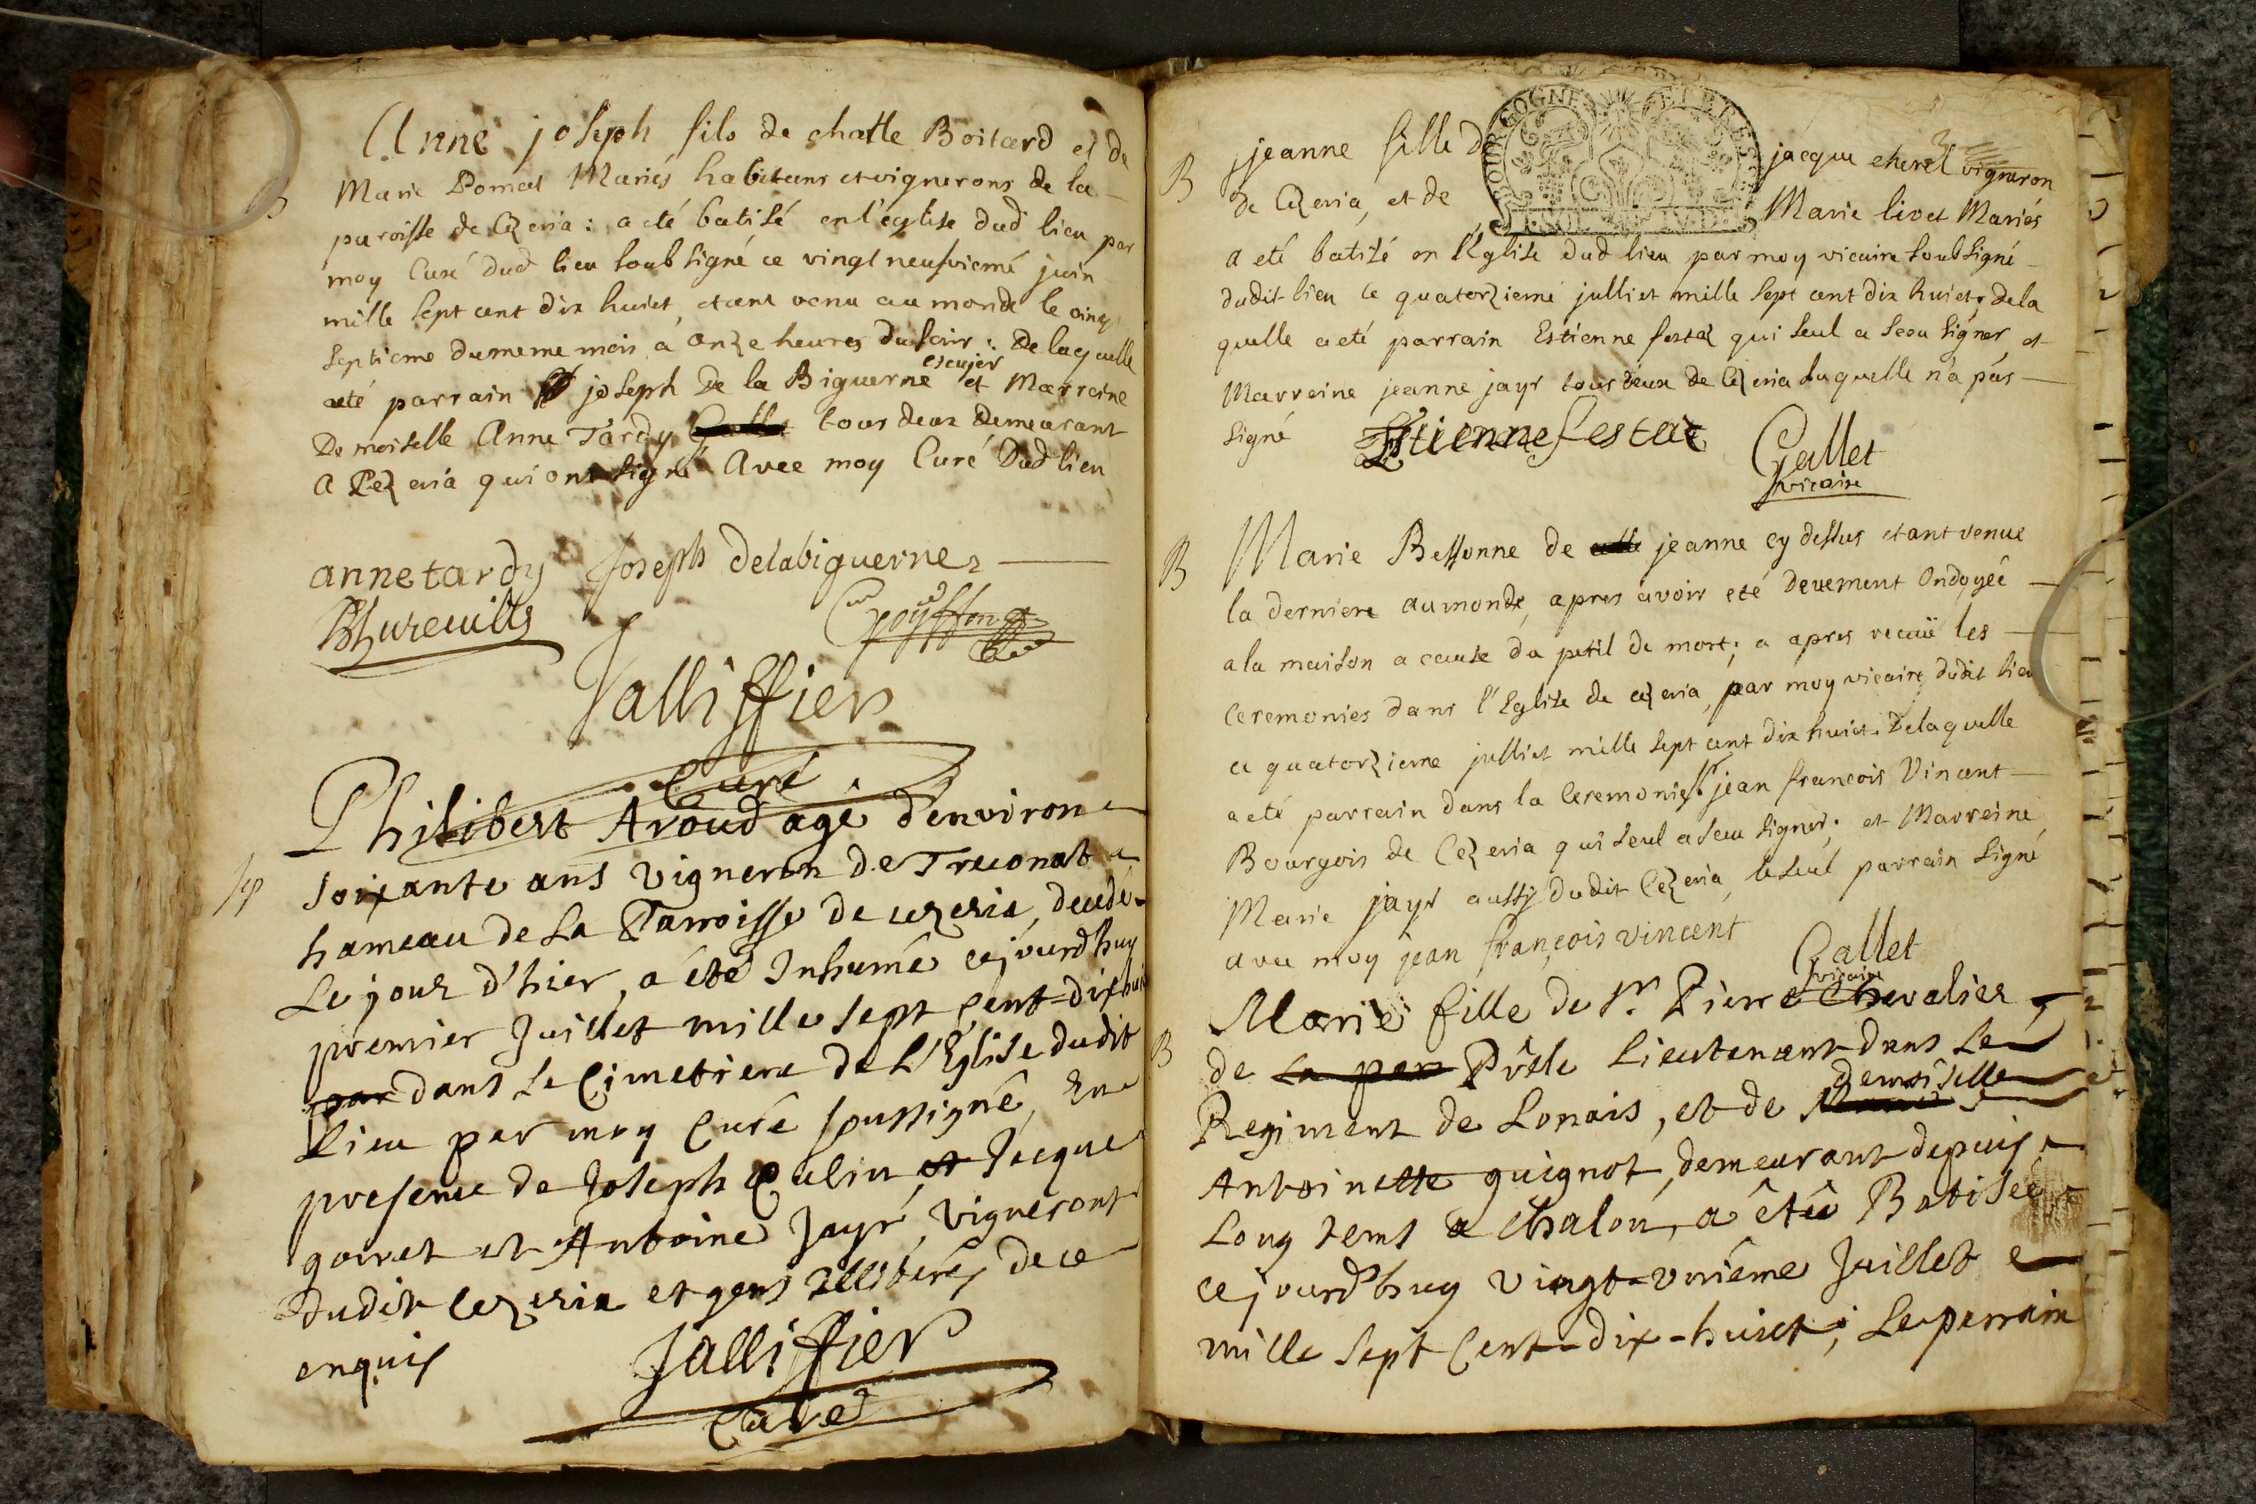 Anne joseph fils de charle Boitard et de
B
Marie Pomat Mariés habitans et vignerons de la
paroisse de Cezeria : a eté batisé en l'eglise dud lieu par
moy Curé dud lieu soubsigné ce vingt neufviemé juin
mille sept cent dix huict, etant venu au monde le vingt
septieme du meme mois a onze heures du soir : De laquelle
escujer
aeté parrain joseph de la Biguerne et Marreine
Demoiselle Anne Tardy tous deux demeurant
A Cezeria qui ont signé Avec moy Curé Dud lieu
anne tardy joseph delabiguerne
Jalliffier
Curé
Philibert Aroud agé d'environ
Sep
soixante ans vigneron de Treconat
hameau de La Parroisse de cezeria, decedé
Le jour d'hier, a été Inhumé cejourd'huy
premier Juillet mille sept cent-dix huit
par dans Le Cimetiere de L'Eglise dudit
Lieu par moy Curé soussigné, En
presence de Joseph Culin et Jacque
goiret et Antoine Jayr, vignerons
dudit cezeria et gens illitérés de ce
enquis
Jalliffier
Curé
BOURGOGNE ET BRESSE
B
jeanne fille d jacque cherel vigneron
de Cezeria, et de Marie livet Mariés
a eté batisé en l'Eglise dud lieu par moy vicaire soubsigné
dudit lieu ce quatorzieme julliet mille sept cent dix huict; de la
quelle a eté parrain Estienne festaz qui seul a sceu signer, et
Marreine jeanne jayr tous deux de Cezeria laquelle n'a pas
signé Estienne festaz
Gallet
vicaire
B
Marie Bessonne de celle jeanne cy dessus etant venue
la derniere au monde, apres avoir eté deuement Ondoyée
a la maison a cause du peril de mort; a apres receuë les
Ceremonies dans l'Eglise de cezeria, par moy vicaire dudit lieu
ce quatorzieme julliet mille sept cent dix huict. De laquelle
a eté parrain dans la Ceremonie Sr jean francois Vincent
Bourgois de Cezeria qui seul a sceu signer; et Marreine
Marie jayr aussy dudit Cezeria, le seul parrain signé
avec moy jean françois vincent
Gallet
vicaire
Marie fille de Sr. Pierre Chevalier
B
de la par Prêle Lieutenant dans Le
demoiselle
Regiment de Lonais, et de
Antoinette guignot, demeurant depuis
Long tems a Chalon, a êté Batisée
cejourd'huy vingt-uniéme Juillet
mille sept Cent-dix-huict; Le parrain